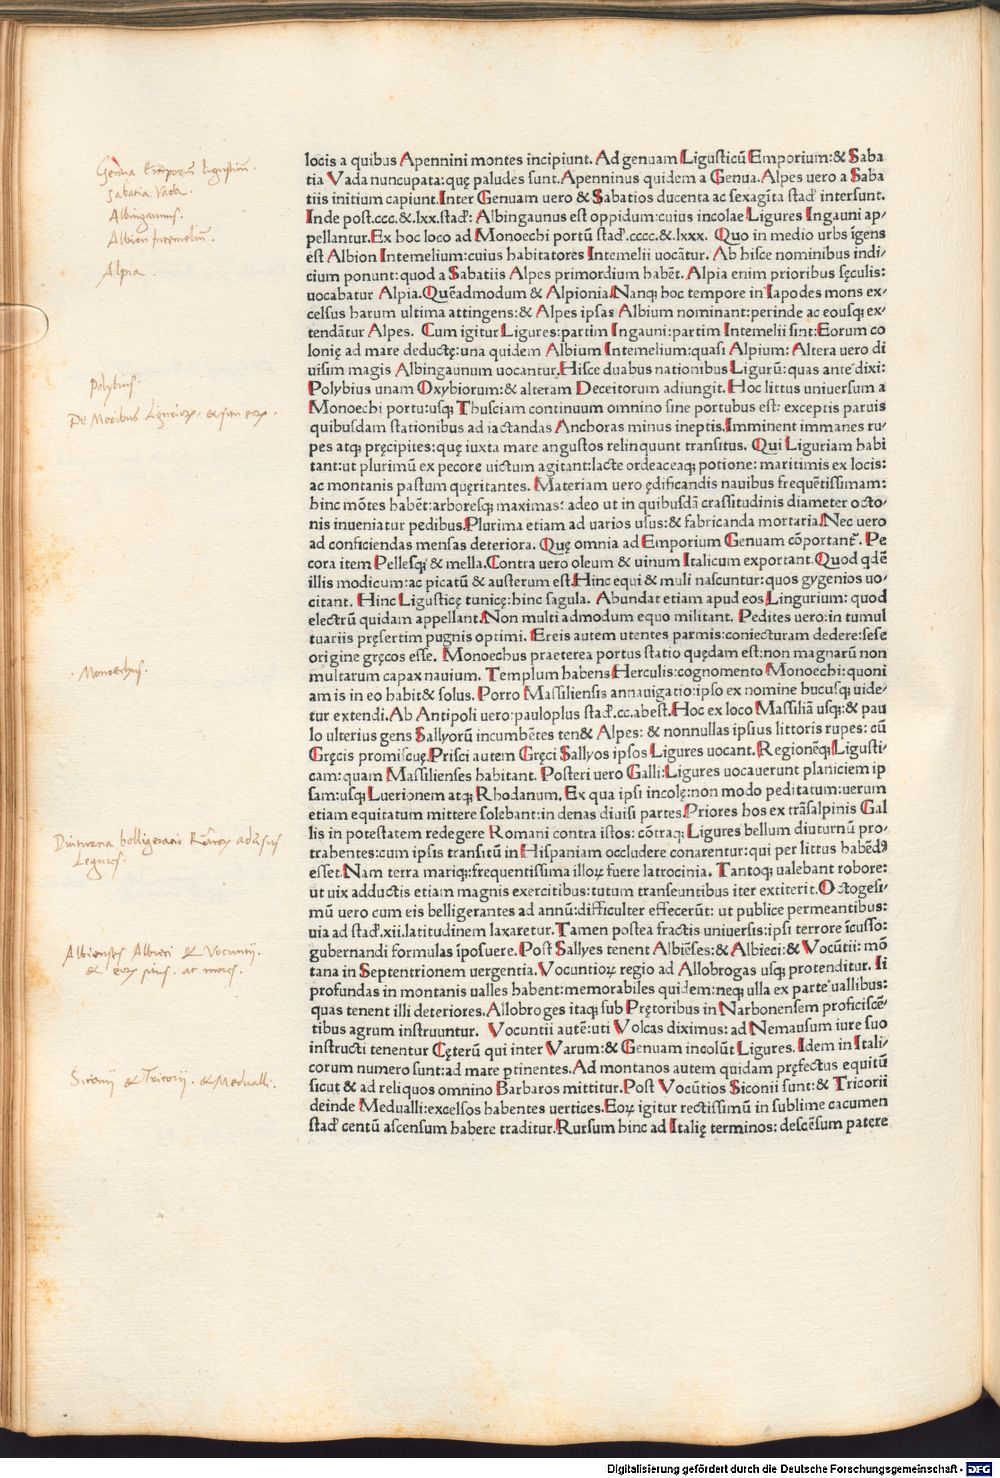 locis a quibus Apennini montes incipiunt. Ad genuam Ligusticũ Emporium:& Saba
tia Vada nuncupata:quę paludes sunt.Apenninus quidem a Genua.Alpes uero a Saba
tiis initium capiunt.Inter Genuam uero & Sabatios ducenta ac sexagĩta stad intersunt.
Inde post.ccc.&.lxx.stad: Albingaunus est oppidum:cuius incolae Ligures Ingauni ap-
pellantur.Ex hoc loco ad Monoechi portũ stad.cccc.&.lxxx. Quo in medio urbs ĩgens
est Albion Intemelium:cuius habitatores Intemelii uocãtur. Ab hisce nominibus indi-
cium ponunt:quod a Sabatiis Alpes primordium habẽt. Alpia enim prioribus sęculis:
uocabatur Alpia.Quẽadmodum & Alpionia.Nanqȝ hoc tempore in Iapodes mons ex-
celsus harum ultima attingens:& Alpes ipsas Albium nominant:perinde ac eousqȝ ex-
tendãtur Alpes. Cum igitur Ligures:partim Ingauni:partim Intemelii sint:Eorum co
lonię ad mare deductę:una quidem Albium Intemelium:quasi Alpium: Altera uero di
uisum magis Albingaunum uocantur.Hisce duabus nationibus Ligurũ:quas ante dixi:
Polybius unam Oxybiorum:& alteram Deceitorum adiungit. Hoc littus uniuersum a
Monoechi portu:usqȝ Thusciam continuum omnino sine portubus est: exceptis paruis
quibusdam stationibus ad iactandas Anchoras minus ineptis.Imminent immanes ru-
pes atqȝ pręcipites:quę iuxta mare angustos relinquunt transitus. Qui Liguriam habi
tant:ut plurimũ ex pecore uictum agitant:lacte ordeaceaqȝ potione: maritimis ex locis:
ac montanis pastum quęritantes. Materiam uero ędificandis nauibus frequẽtissimam:
hinc mõtes habẽt:arboresqȝ maximas: adeo ut in quibusdã crassitudinis diameter octo-
nis inueniatur pedibus.Plurima etiam ad uarios usus:& fabricanda mortaria.Nec uero
ad conficiendas mensas deteriora. Quę omnia ad Emporium Genuam cõportant. Pe
cora item Pellesqȝ & mella.Contra uero oleum & uinum Italicum exportant.Quod qdẽ
illis modicum:ac picatũ & austerum est.Hinc equi & muli nascuntur:quos gygenios uo-
citant. Hinc Ligusticę tunicę:hinc sagula. Abundat etiam apud eos Lingurium: quod
electrũ quidam appellant.Non multi admodum equo militant. Pedites uero:in tumul
tuariis pręsertim pugnis optimi. Ereis autem utentes parmis:coniecturam dedere:sese
origine gręcos esse. Monoechus praeterea portus statio quędam est:non magnarũ non
multarum capax nauium. Templum habens Herculis:cognomento Monoechi:quoni
am is in eo habit& solus. Porro Massiliensis annauigatio:ipso ex nomine hucusqȝ uide-
tur extendi.Ab Antipoli uero:pauloplus stad.cc.abest.Hoc ex loco Massiliã usqȝ:& pau
lo ulterius gens Sallyorũ incumbẽtes ten& Alpes: & nonnullas ipsius littoris rupes: cũ
Gręcis promiscuę.Prisci autem Gręci Sallyos ipsos Ligures uocant. Regionẽqȝ Ligusti-
cam:quam Massilienses habitant. Posteri uero Galli:Ligures uocauerunt planiciem ip
sam:usqȝ Luerionem atqȝ Rhodanum. Ex qua ipsi incolę:non modo peditatum:uerum
etiam equitatum mittere solebant:in denas diuisi partes.Priores hos ex trãsalpinis Gal
lis in potestatem redegere Romani contra istos: cõtraqȝ Ligures bellum diuturnũ pro-
trahentes:cum ipsis transitũ in Hispaniam occludere conarentur:qui per littus habẽdꝰ
esset.Nam terra mariqȝ:frequentissima illoꝝ fuere latrocinia. Tantoqȝ ualebant robore:
ut uix adductis etiam magnis exercitibus:tutum transeuntibus iter extiterit.Octogesi-
mũ uero cum eis belligerantes ad annũ:difficulter effecerũt: ut publice permeantibus:
uia ad stad.xii.latitudinem laxaretur.Tamen postea fractis uniuersis:ipsi terrore ĩcusso:
gubernandi formulas ĩposuere.Post Sallyes tenent Albiẽses:& Albieci:& Vocũtii: mõ
tana in Septentrionem uergentia.Vocuntioꝝ regio ad Allobrogas usqȝ protenditur. Ii
profundas in montanis ualles habent:memorabiles quidem:neqȝ ulla ex parte uallibus:
quas tenent illi deteriores.Allobroges itaqȝ sub Prętoribus in Narbonensem proficiscẽ-
tibus agrum instruuntur. Vocuntii autẽ:uti Volcas diximus: ad Nemausum iure suo
instructi tenentur Cęterũ qui inter Varum:& Genuam incolũt Ligures. Idem in Itali-
corum numero sunt:ad mare ꝑtinentes.Ad montanos autem quidam pręfectus equitũ
sicut & ad reliquos omnino Barbaros mittitur.Post Vocũtios Siconii sunt:& Tricorii
deinde Medualli:excelsos habentes uertices.Eoꝝ igitur rectissimũ in sublime cacumen
stad centũ ascensum habere traditur.Rursum hinc ad Italię terminos: descẽsum patere
Genua Emporiũ Ligusticũ.
Sabatia Vada.
Albingaunus.
Albion Intemeliũ.
Alpia.
Polybius.
De Moribus Liguriorꝝ. & situ eorꝝ.
Monoechus.
Diuturna belligeratio Rõnorꝝ aduersus
Ligures.
Albienses Albieci & Vocuntii.
& eorꝝ situs. ac mores.
Siconii & Tricorii. & Medualli.
Digitalisierung gefördert durch die Deutsche Forschungsgemeinschaft - DFG